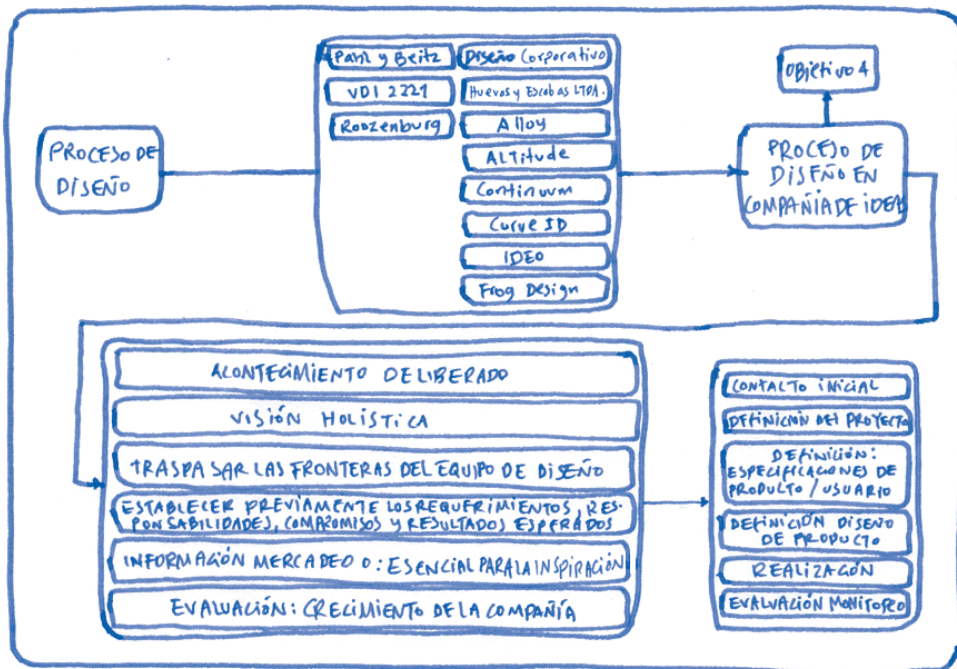 PROCESO DE
DISEÑO
Pahl y Beitz
VDI 2221
Roozenburg
Diseño Corporativo
Huevos y Escobas LTDA.
Alloy
ALTitude
Continuum
Curve ID
IDEO
Frog Design
OBjetivo 4
PROCESO DE
DISEÑO EN
COMPAÑIA DE IDEAS
ACONTECIMIENTO DELIBERADO
VISIÓN HOLÍSTICA
TRASPASAR LAS FRONTERAS DEL EQUIPO DE DISEÑO
ESTABLECER PREVIAMENTE LOS REQUERIMIENTOS, RES-
PONSABILIDADES, COMPROMISOS Y RESULTADOS ESPERADOS
INFORMACIÓN MERCADEO O: ESENCIAL PARA LA INSPIRACIÓN
EVALUACIÓN: CRECIMIENTO DE LA COMPAÑÍA
CONTACTO INICIAL
DEFINICIÓN DEL PROYECTO
DEFINICIÓN:
ESPECIFICACIONES DE
PRODUCTO / USUARIO
DEFINICIÓN DISEÑO
DE PRODUCTO
REALIZACIÓN
EVALUACIÓN MONITOREO